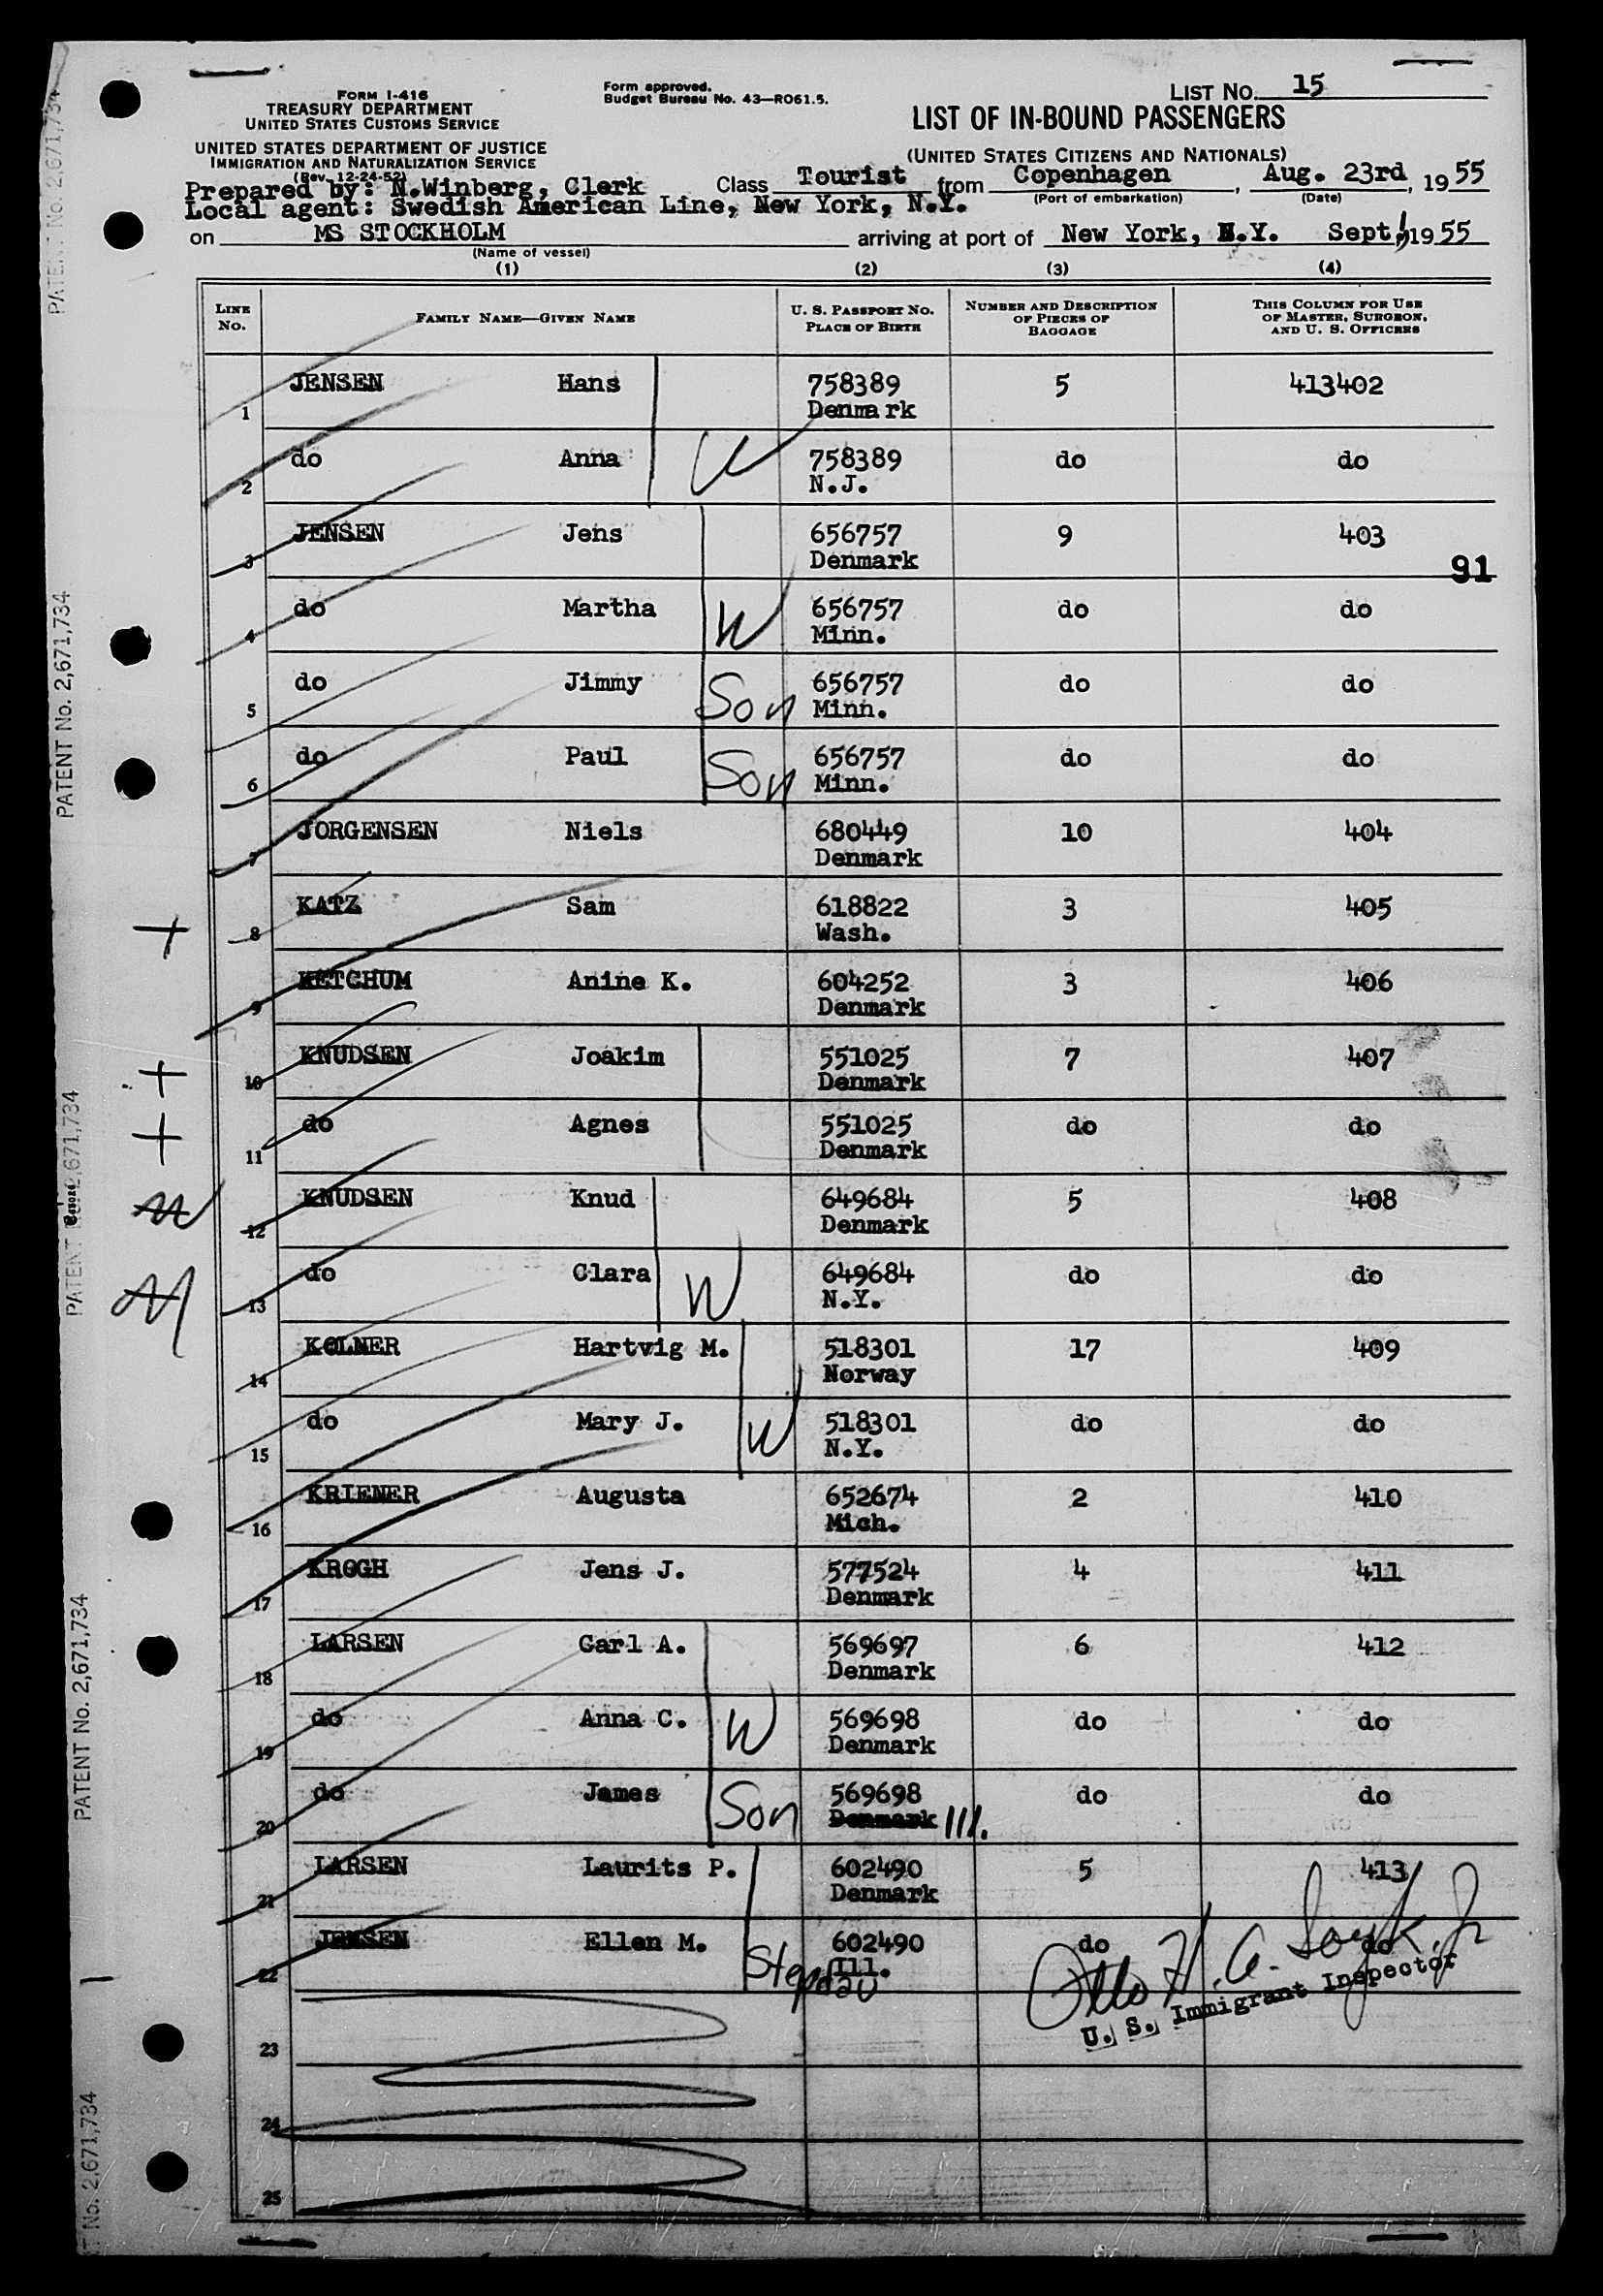 FORM I-416
TREASURY DEPARTMENT
UNITED STATES CUSTOMS SERVICE
UNITED STATES DEPARTMENT OF JUSTICE
IMMIGRATION AND NATURALIZATION SERVICE
(Rev. 12-24-52)
Form approved.
Budget Bureau No. 43—RO61.5.
LIST NO. 15
LIST OF IN-BOUND PASSENGERS
(UNITED STATES CITIZENS AND NATIONALS)
Prepared by: N.Winberg, Clerk Class Tourist from Copenhagen, Aug. 23rd, 1955
(Port of embarkation) (Date)
Local agent: Swedish American Line, New York, N.Y.
on MS STOCKHOLM arriving at port of New York, N.Y. Sept. 1, 1955
(Name of vessel)
(1) (2) (3) (4)
LINE NO. FAMILY NAME—GIVEN NAME U. S. PASSPORT NO. PLACE OF BIRTH NUMBER AND DESCRIPTION OF PIECES OF BAGGAGE THIS COLUMN FOR USE OF MASTER, SURGEON, AND U. S. OFFICERS
JENSEN Hans 758389 5 413402
1 Denmark
do Anna W 758389 do do
2 N.J.
JENSEN Jens 656757 9 403
3 Denmark 91
do Martha W 656757 do do
4 Minn.
do Jimmy Son 656757 do do
5 Minn.
do Paul Son 656757 do do
6 Minn.
JORGENSEN Niels 680449 10 404
7 Denmark
KATZ Sam 618822 3 405
+ 8 Wash.
KETCHUM Anine K. 604252 3 406
9 Denmark
KNUDSEN Joakim 551025 7 407
+ 10 Denmark
do Agnes 551025 do do
+ 11 Denmark
KNUDSEN Knud 649684 5 408
12 Denmark
do Clara W 649684 do do
13 N.Y.
KOLNER Hartvig M. 518301 17 409
14 Norway
do Mary J. W 518301 do do
15 N.Y.
KRIENER Augusta 652674 2 410
16 Mich.
KROGH Jens J. 577524 4 411
17 Denmark
LARSEN Carl A. 569697 6 412
18 Denmark
do Anna C. W 569698 do do
19 Denmark
do James Son 569698 do do
20 Denmark Ill.
LARSEN Laurits P. 602490 5 413
21 Denmark
JENSEN Ellen M. 602490 do do
22 Stepdau Ill.
Otto H. A.
U. S. Immigrant Inspector
23
24
25
PATENT No. 2,671,734
PATENT No. 2,671,734
PATENT No. 2,671,734
PATENT No. 2,671,734
No. 2,671,734